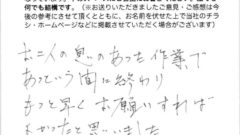 何でも結構です。(※お送りいただきましたご意見・ご感想は今
後の参考にさせて頂くとともに、お名前を伏せた上で当社のチラ
シ・ホームページなどに掲載させていただく場合がございます)
お二人の息のあった作業で
あっという間に終わり
もっと早くお願いすれば
よかったと思いました